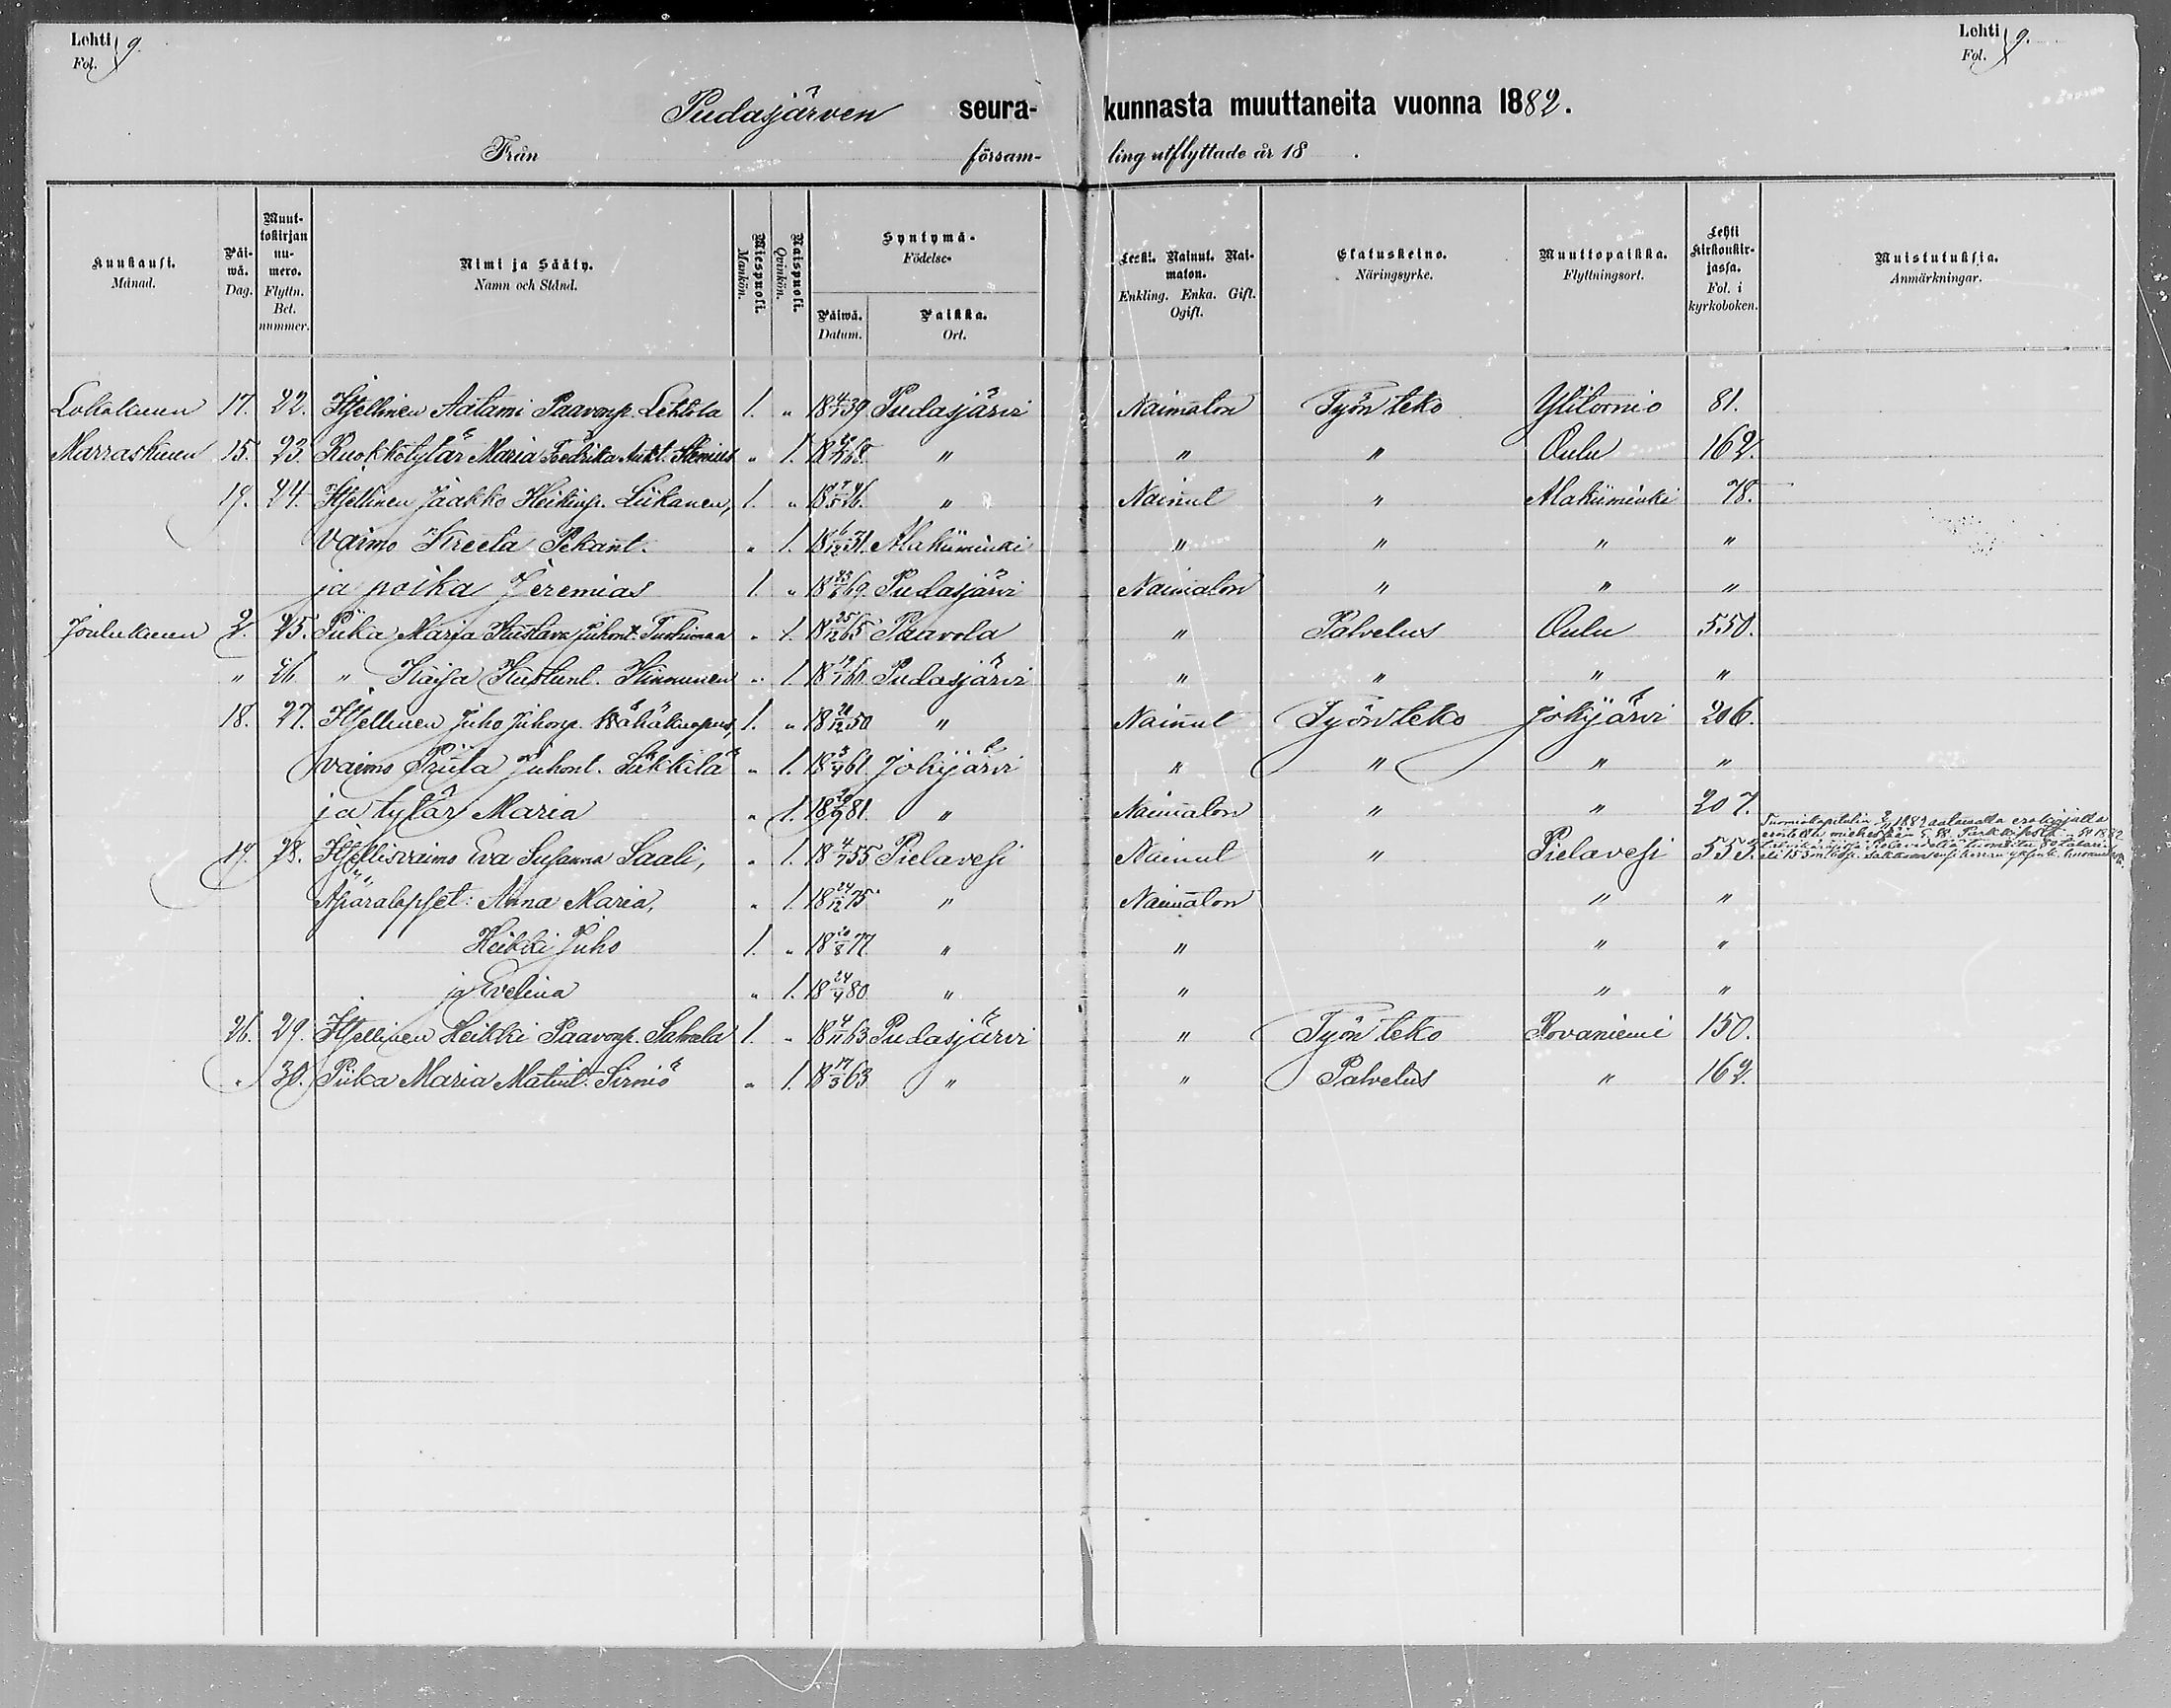 Lehti 9.
Fol.
Lehti 9.
Fol.
Pudasjärven seura-kunnasta muuttaneita vuonna 1882.
Från församling utflyttade år 18 .
Kuukausi. Månad.
Päiwä. Dag.
Muuttokirjan numero. Flyttn. Bet. nummer.
Nimi ja Sääty. Namn och Stånd.
Miespuoli. Mankön.
Naispuoli. Qvinkön.
Syntymä- Födelse-
Päiwä. Datum.
Paikka. Ort.
Leski. Nainut. Naimaton. Enkling. Enka. Gift. Ogift.
Elatuskeino. Näringsyrke.
Muuttopaikka. Flyttningsort.
Lehti Kirkonkirjassa. Fol. i kyrkoboken.
Muistutuksia. Anmärkningar.
Lokakuun 17. 22. Itsellinen Aatami Paavonp. Lehtola 1. " 18 4/7 39 Pudasjärvi Naimaton Työn teko Ylitornio 81.
Marraskuun 15. 23. Ruokkotytär Maria Fredrika " 1. " " " Oulu 162.
19. 24. Itsellinen Jaakko Heikinp. Liikanen, 1. " " Nainut " Alakiiminki 78.
Vaimo Kreeta Pekant. " 1. 18 6/12 31. Alakiiminki " " " "
ja poika Jeremias 1. " Pudasjärvi Naimaton " " "
Joulukuun 2. 25. Piika Maria Kustava Juhont. " 1. 18 25/12 65 Paavola " Palvelus Oulu 550.
" 26. " Kaisa Kustunt. Kinnunen " 1. Pudasjärvi " " " "
18. 27. Itsellinen Juho Juhonp. Wähäkuopus, 1. " " Nainut Työn teko Jokijärvi 206.
vaimo Priita Juhont. Säkkilä " 1. 18 3/4 61. Jokijärvi " " " "
ja tytär Maria " 1. " Naimaton " " 207.
19. 28. Itsellisvaimo Eva Susanna Saali, " 1. 18 4/7 55 Pielavesi Nainut " Pielavesi 553.
Äpärälapset: Anna Maria, " 1. 18 24/12 75 " Naimaton " "
Heikki Juho 1. " " " " "
ja Evelina " 1. 18 24/4 80 " " " "
26. 29. Itsellinen Heikki Paavonp. Salmela 1. " 18 4/11 63 Pudasjärvi " Työn teko Rovaniemi 150.
" 30. Piika Maria Matint. Sirniö " 1. 18 17/3 63 " " Palvelus " 162.